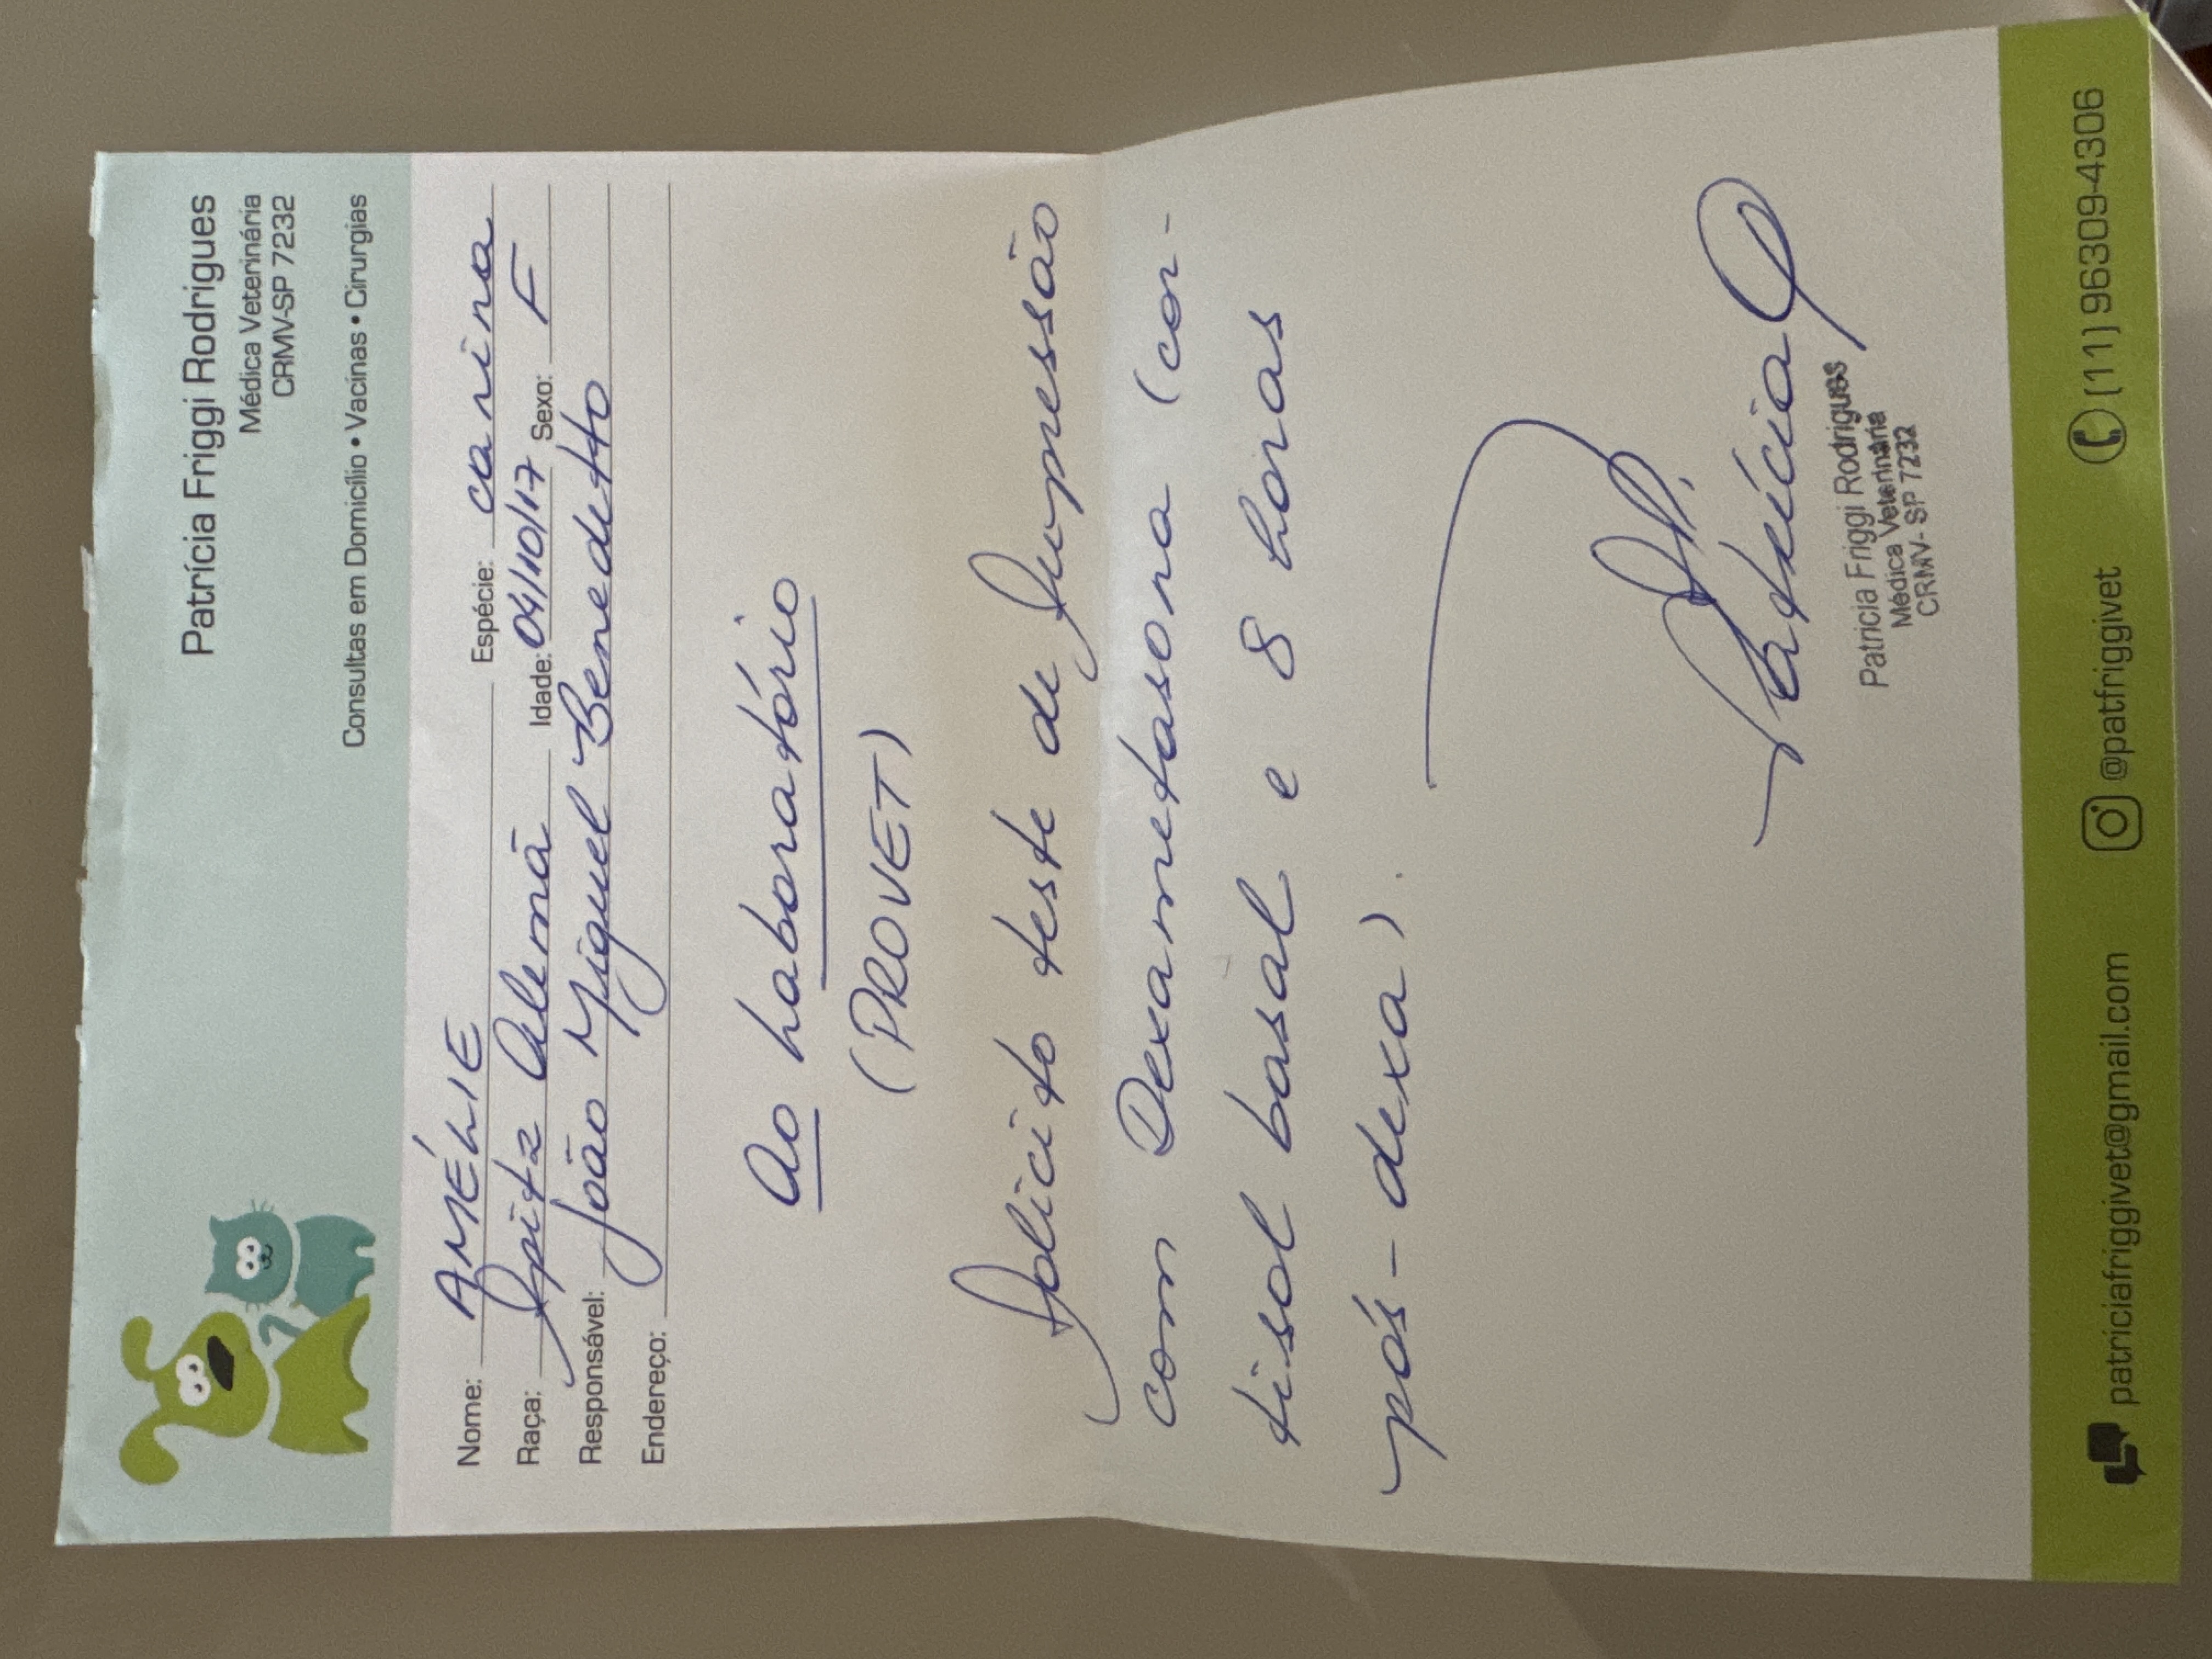 Patrícia Friggi Rodrigues
Médica Veterinária
CRMV-SP 7232
Consultas em Domicílio • Vacinas • Cirurgias
Nome: AMÉLIE Espécie: canina
Raça: Spitz Alemã Idade: 04/10/17 Sexo: F
Responsável: João Miguel Benedetto
Endereço:
Ao Laboratório
(PROVET)
Solicito teste de Supressão
com Dexametasona (cor-
tisol basal e 8 horas
pós-dexa).
Patrícia
Patricia Friggi Rodrigues
Médica Veterinária
CRMV- SP 7232
patriciafriggivet@gmail.com @patfriggivet (11) 96309-4306